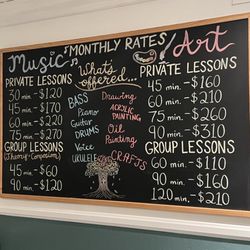 MONTHLY RATES
Music
PRIVATE LESSONS
30 min.-$120
45 min.-$170
60 min.-$220
75 min.-$270
GROUP LESSONS
(Theory-Composition)
45 min.-$60
90 min.-$120
What's
offered...
BASS
Piano
Guitar
DRUMS
Voice
UKULELE
Drawing
ACRYLIC
PAINTING
Oil
Painting
CRAFTS
Art
PRIVATE LESSONS
45 min.-$160
60 min.-$210
75 min.-$260
90 min.-$310
GROUP LESSONS
60 min.-$110
90 min.-$160
120 min.-$210